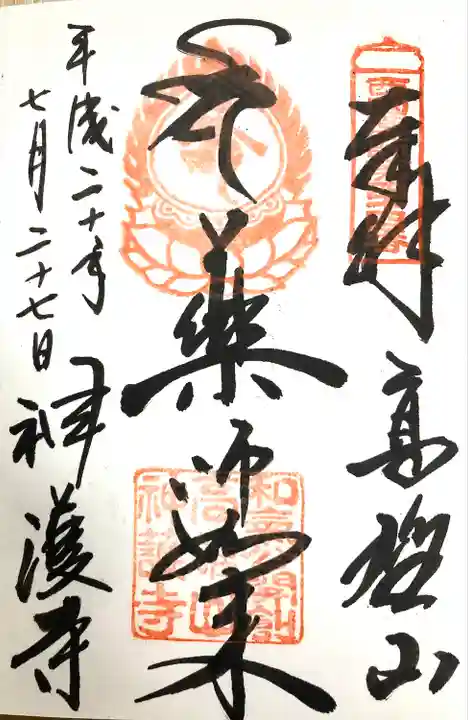 奉拝 高雄山
薬師如来
平成二十年
七月二十七日
神護寺
和気公開創
高雄山
神護寺